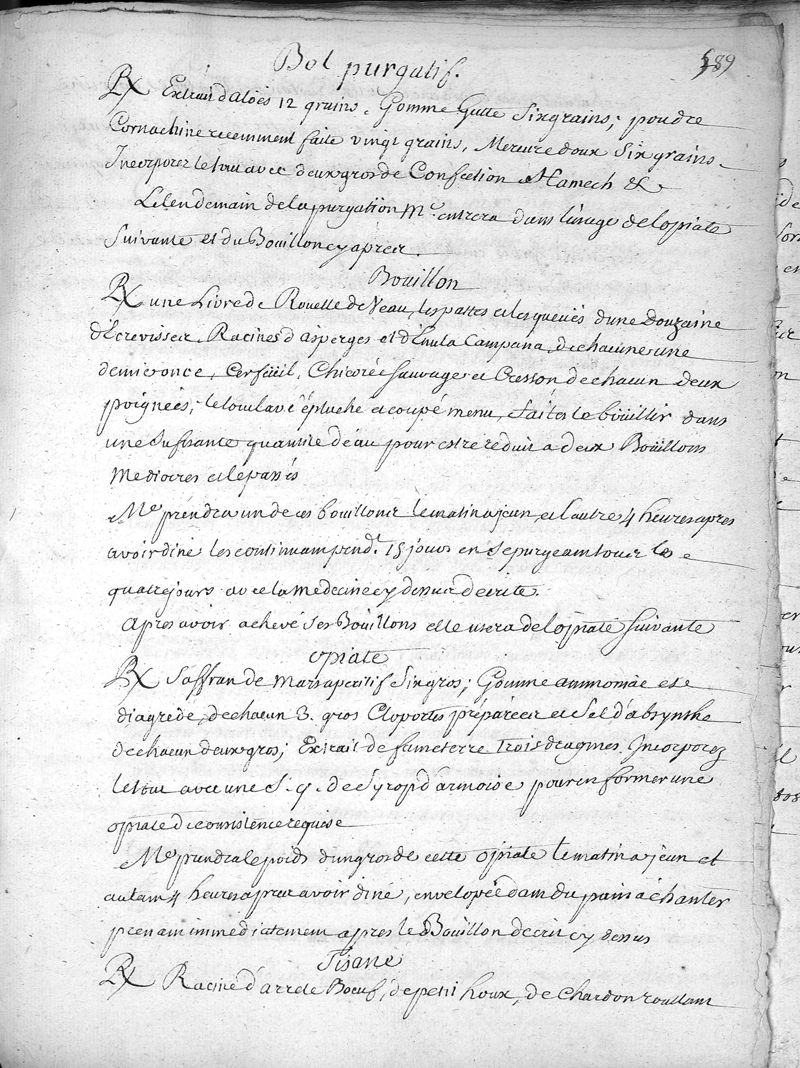 589
Bol purgatif.
Rx Extrait d'aloës 12 grains, Gomme Gutte Six grains; poudre
Cornachine recemment faite vingt grains, Mercure doux Six grains.
Incorporez le tout avec deux gros de Confection Hamech &
Le lendemain de la purgation Me. entrera dans l'usage de lopiate
Suivante et du Bouillon cy aprèr.
Bouillon
Rx une Livre de Rouelle de Veau, les pattes et les queuës d'une Douzaine
d'Ecrevisser, Racines d'asperges et d'Enula Campana, de chacune une
demie once, Cerfeüil, Chicorée Sauvage et Cresson de chacun deux
poignées; le tout lavé épluché et coupé menu, faites le boüillir dans
une Suffisante quantité d'eau pour estre reduit a deux Boüillons
Mediocres et le passés
Me prendra un de ces boüillons le matin a jeun, et l'autre 4 heures apres
avoir diné les continuant pendt. 15 jours en Se purgeant tous les
quatre jours avec la medecine cy dessus decrite.
Apres avoir achevé Ses Boüillons elle usera de lopiate Suivante
opiate
Rx Saffran de Mars aperitif Six gros; Gomme ammoniac et
diagrede, de chacun 3. gros Cloportes préparéer et Sel d'absynthe
de chacun deux gros; Extrait de fumeterre Trois dragmes, Incorporez
le tout avec une S. q. de Syrop d'armoise pour en former une
opiate de consistence requise
Me prendra le poids d'un gros de cette opiate le matin a jeun et
autant 4 heures apres avoir diné, envelopée dans du pain à chanter
prenant immediatement apres le Boüillon decrit cy dessus
Tisane
Rx Racine d'arrete Boeuf, de petit houx, de Chardon roullant